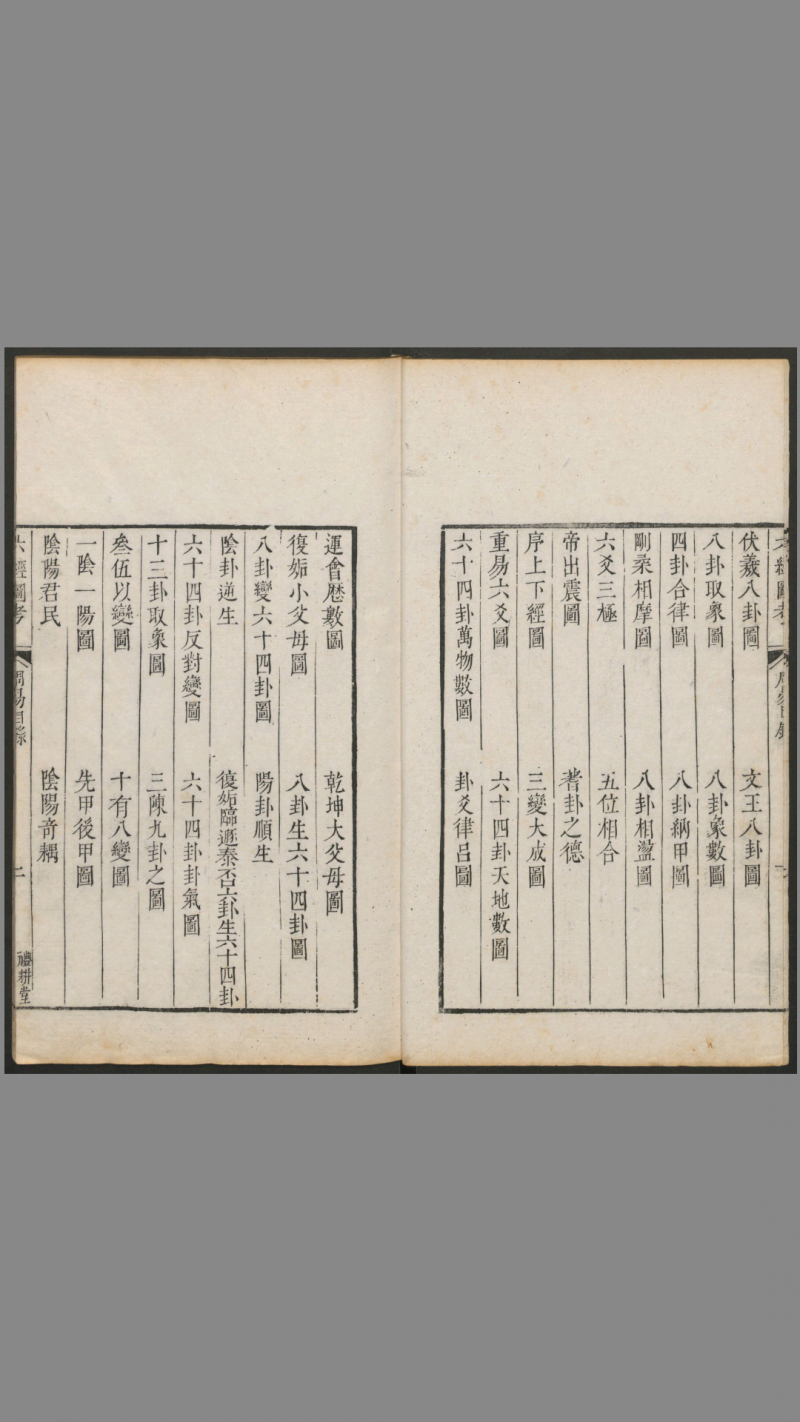 六經圖考
周易目錄
伏羲八卦圖 文王八卦圖
八卦取象圖 八卦象數圖
四卦合律圖 八卦納甲圖
剛柔相摩圖 八卦相盪圖
六爻三極 五位相合
帝出震圖 蓍卦之德
序上下經圖 三變大成圖
重易六爻圖 六十四卦天地數圖
六十四卦萬物數圖 卦爻律呂圖
運會歷數圖 乾坤大父母圖
復姤小父母圖 八卦生六十四卦圖
八卦變六十四卦圖 陽卦順生
陰卦逆生 復姤臨遯泰否六卦生六十四卦
六十四卦反對變圖 六十四卦卦氣圖
十三卦取象圖 三陳九卦之圖
叄伍以變圖 十有八變圖
一陰一陽圖 先甲後甲圖
陰陽君民 陰陽竒耦
六經圖考 周易目錄 二 禮耕堂